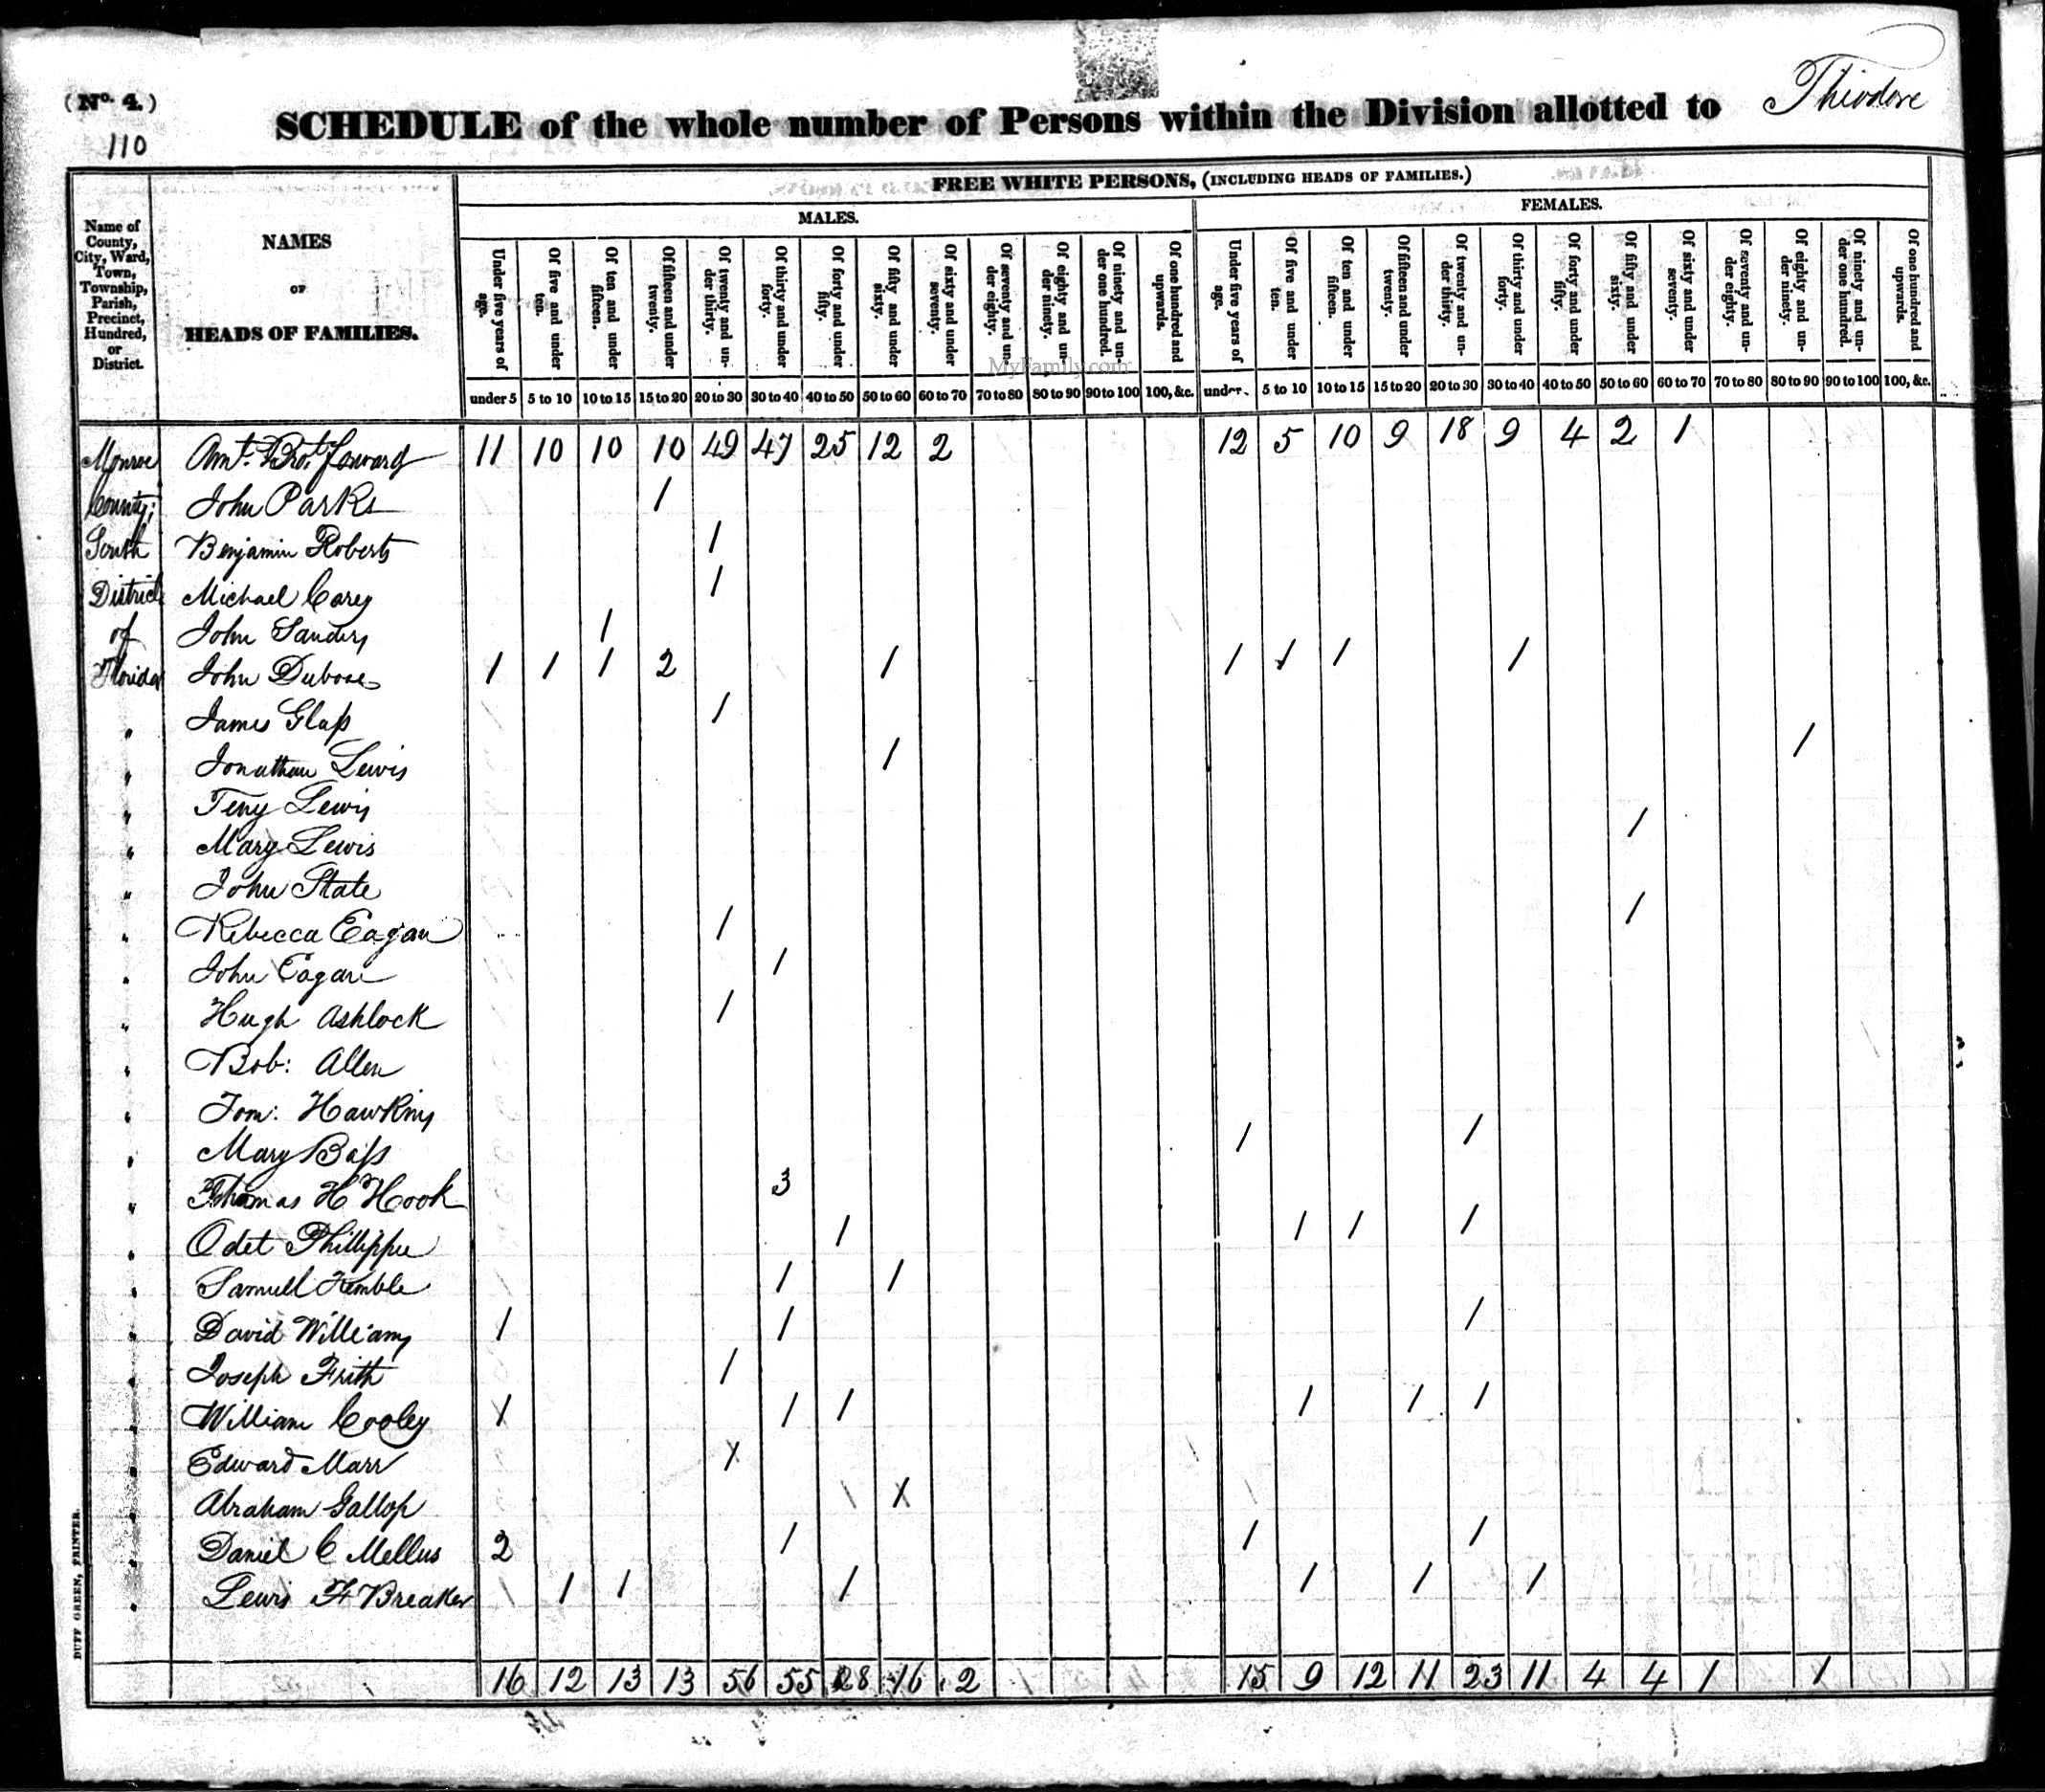 (No. 4.)
110
SCHEDULE of the whole number of Persons within the Division allotted to Theodore
FREE WHITE PERSONS, (INCLUDING HEADS OF FAMILIES.)
MALES. FEMALES.
Name of County, City, Ward, Town, Township, Parish, Precinct, Hundred, or District.
NAMES
OF
HEADS OF FAMILIES.
Under five years of age. Of five and under ten. Of ten and under fifteen. Of fifteen and under twenty. Of twenty and under thirty. Of thirty and under forty. Of forty and under fifty. Of fifty and under sixty. Of sixty and under seventy. Of seventy and under eighty. Of eighty and under ninety. Of ninety and under one hundred. Of one hundred and upwards. Under five years of age. Of five and under ten. Of ten and under fifteen. Of fifteen and under twenty. Of twenty and under thirty. Of thirty and under forty. Of forty and under fifty. Of fifty and under sixty. Of sixty and under seventy. Of seventy and under eighty. Of eighty and under ninety. Of ninety and under one hundred. Of one hundred and upwards.
MyFamily.com
under 5 5 to 10 10 to 15 15 to 20 20 to 30 30 to 40 40 to 50 50 to 60 60 to 70 70 to 80 80 to 90 90 to 100 100, &c. under 5 to 10 10 to 15 15 to 20 20 to 30 30 to 40 40 to 50 50 to 60 60 to 70 70 to 80 80 to 90 90 to 100 100, &c.
Monroe Amt. Brot. forward 11 10 10 10 49 47 25 12 2 12 5 10 9 18 9 4 2 1
County; John Parks 1
South Benjamin Roberts 1
District Michael Carey 1
of John Sanders 1
Florida John Dubose 1 1 1 2 1 1 1 1 1
" James Glass 1
" Jonathan Lewis 1 1
" Lewis
" Mary Lewis 1
" John State
" Rebecca Eagan 1 1
" John Eagan 1
" Hugh Ashlock 1
" Bob: Allen
" Tom: Hawkins
" Mary Bass 1 1
" Thomas H Hook 3
" Odet Phillippe 1 1 1 1
" Samuell Kemble 1 1
" David Williams 1 1 1
" Joseph Frith 1
" William Cooley 1 1 1 1 1 1
" Edward Marr X
" Abraham Gallop X
" Daniel C Mellus 2 1 1 1
" Lewis F Breaker 1 1 1 1 1 1
16 12 13 13 56 55 28 16 2 15 9 12 11 23 11 4 4 1 1
DUFF GREEN, PRINTER.